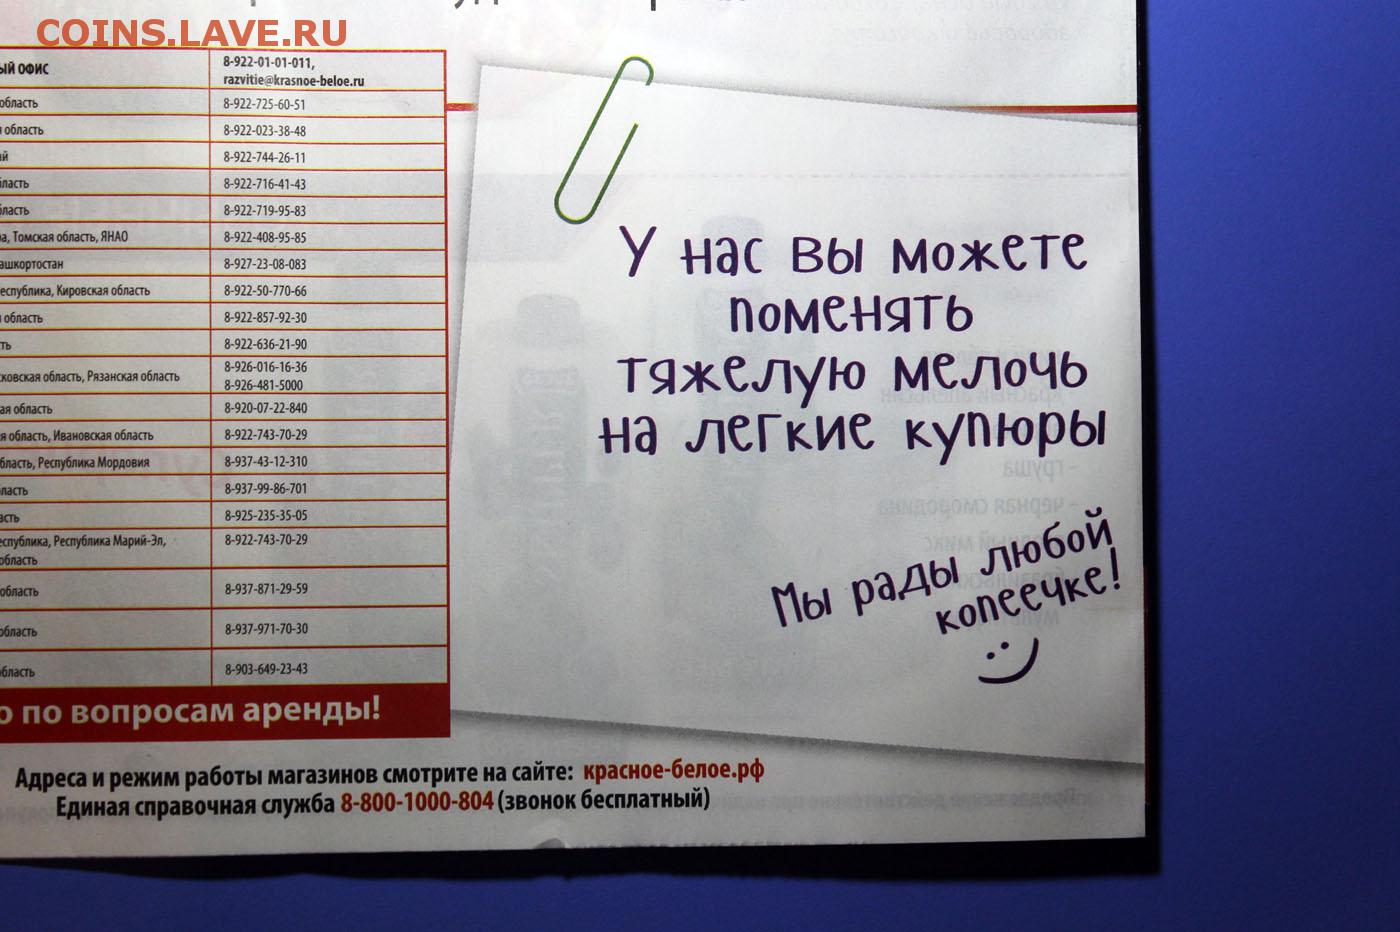 COINS.LAVE.RU
ЫЙ ОФИС 8-922-01-01-011,
razvitie@krasnoe-beloe.ru
область 8-922-725-60-51
область 8-922-023-38-48
ай 8-922-744-26-11
бласть 8-922-716-41-43
бласть 8-922-719-95-83
а, Томская область, ЯНАО 8-922-408-95-85
ашкортостан 8-927-23-08-083
еспублика, Кировская область 8-922-50-770-66
область 8-922-857-92-30
ть 8-922-636-21-90
сковская область, Рязанская область 8-926-016-16-36
8-926-481-5000
ая область 8-920-07-22-840
я область, Ивановская область 8-922-743-70-29
бласть, Республика Мордовия 8-937-43-12-310
ласть 8-937-99-86-701
асть 8-925-235-35-05
еспублика, Республика Марий-Эл, 8-922-743-70-29
область
область 8-937-871-29-59
область 8-937-971-70-30
бласть 8-903-649-23-43
о по вопросам аренды!
У нас вы можете
поменять
тяжелую мелочь
на легкие купюры
Мы рады любой
копеечке!
Адреса и режим работы магазинов смотрите на сайте: красное-белое.рф
Единая справочная служба 8-800-1000-804 (звонок бесплатный)